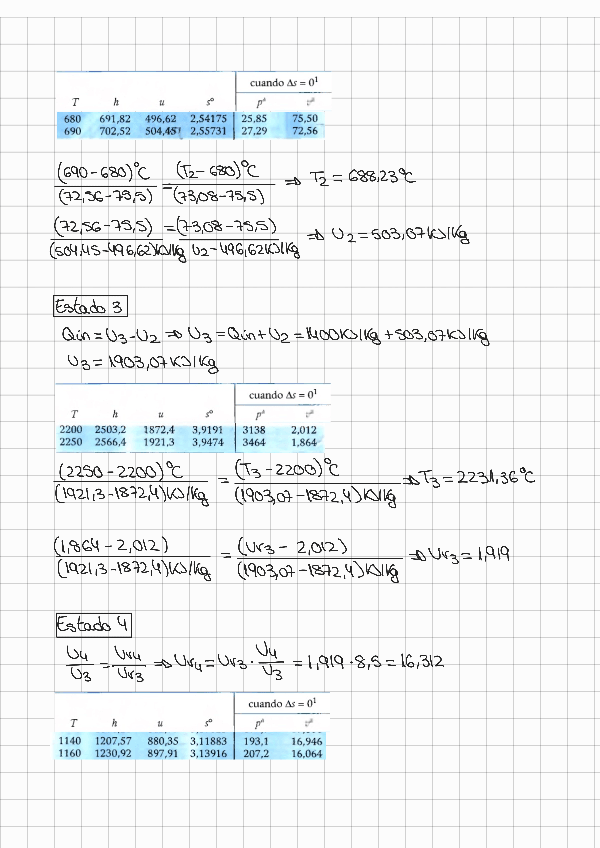 cuando Δs = 0¹
T h u s° pʳ vʳ
680 691,82 496,62 2,54175 25,85 75,50
690 702,52 504,45 2,55731 27,29 72,56
(690-680)°C / (72,56-75,5) = (T2-680)°C / (73,08-75,5) ⇒ T2 = 688,23°C
(72,56-75,5) / (504,45-496,62)KJ/Kg = (73,08-75,5) / U2-496,62KJ/Kg ⇒ U2 = 503,07KJ/Kg
Estado 3
Qin = U3-U2 ⇒ U3 = Qin+U2 = 1400KJ/Kg + 503,07KJ/Kg
U3 = 1903,07KJ/Kg
cuando Δs = 0¹
T h u s° pʳ vʳ
2200 2503,2 1872,4 3,9191 3138 2,012
2250 2566,4 1921,3 3,9474 3464 1,864
(2250-2200)°C / (1921,3-1872,4)KJ/Kg = (T3-2200)°C / (1903,07-1872,4)KJ/Kg ⇒ T3 = 2231,36°C
(1,864-2,012) / (1921,3-1872,4)KJ/Kg = (Ur3-2,012) / (1903,07-1872,4)KJ/Kg ⇒ Ur3 = 1,919
Estado 4
U4/U3 = Ur4/Ur3 ⇒ Ur4 = Ur3 · U4/U3 = 1,919 · 8,5 = 16,312
cuando Δs = 0¹
T h u s° pʳ vʳ
1140 1207,57 880,35 3,11883 193,1 16,946
1160 1230,92 897,91 3,13916 207,2 16,064